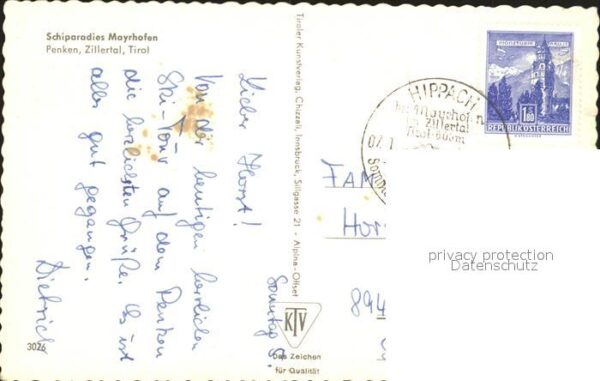 Schiparadies Mayrhofen
Penken, Zillertal, Tirol
Sonntag
Lieber Horst!
Von der heutigen herrlichen
Ski-Tour auf dem Penken
die herzlichsten Grüße. Es ist
alles gut gegangen.
Dietrich
3026
Tiroler Kunstverlag, Chizzali, Innsbruck, Sillgasse 21 - Alpina-Offset
KTV
Das Zeichen
für Qualität
HIPPACH
bei Mayrhofen
Zillertal
07.1
MÜNZTURM HALL
1.80
REPUBLIK ÖSTERREICH
FAM
Hor
894
privacy protection
Datenschutz